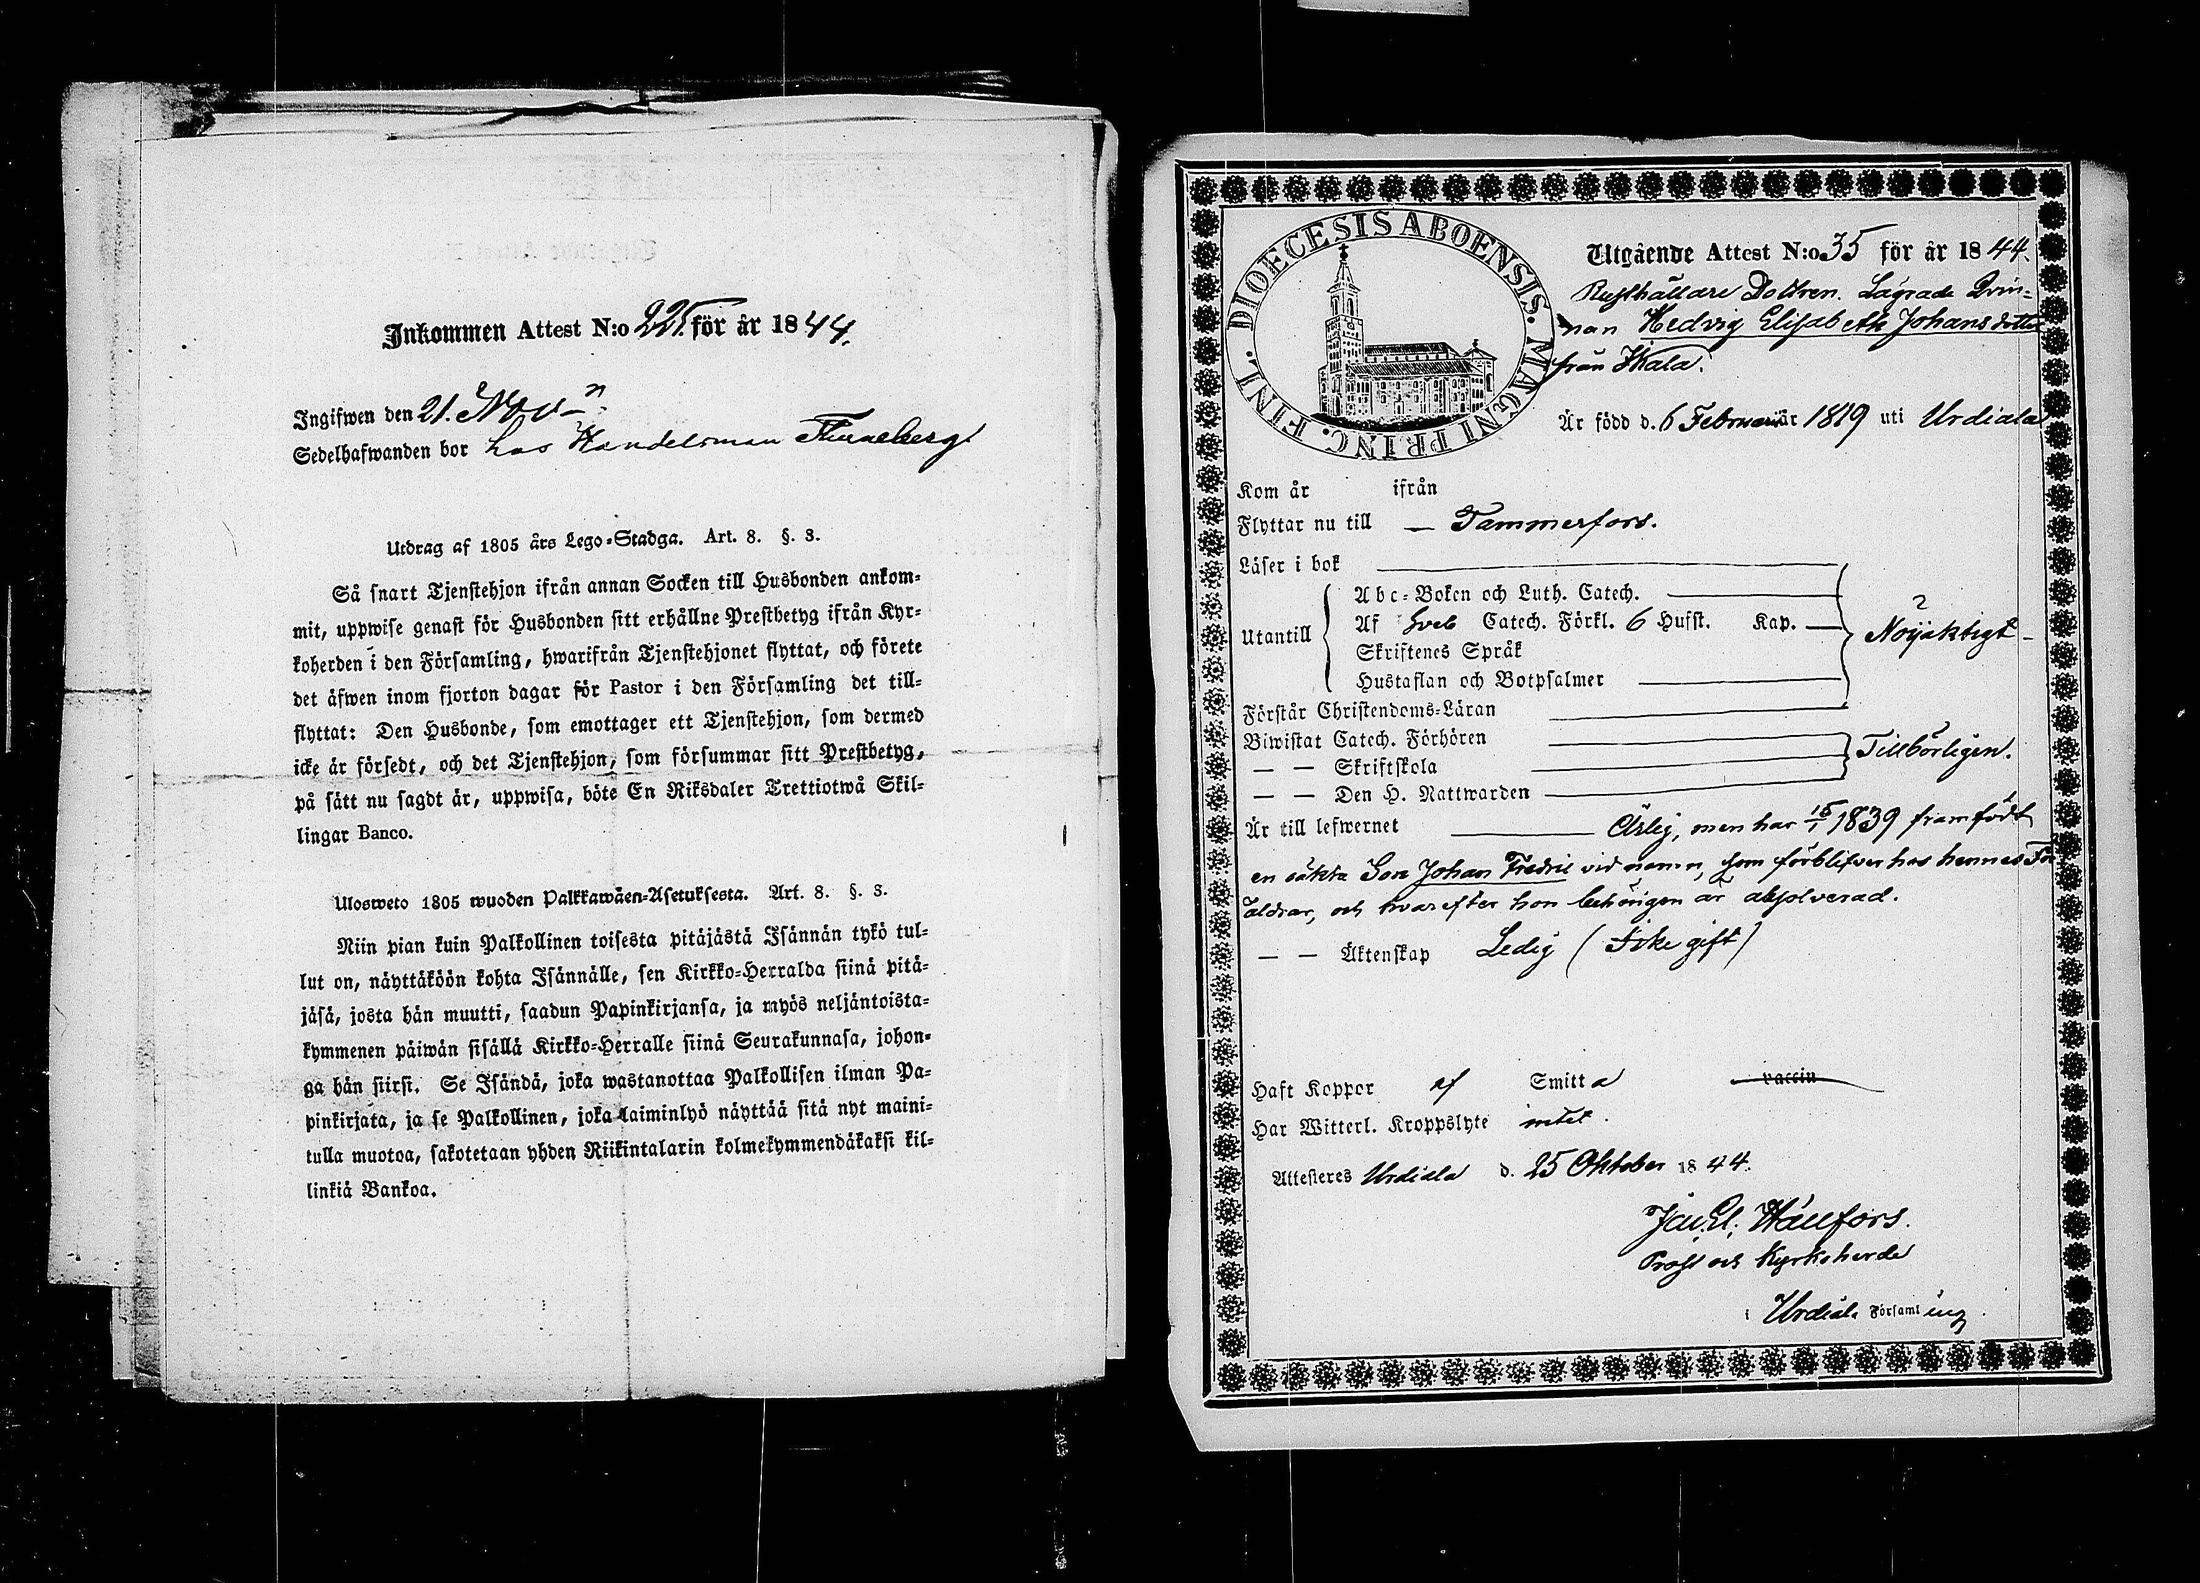 Inkommen Attest N:o 225. för år 1844.
Ingifwen den 21. Nov-
Sedelhafwanden bor hos Handelsman Thuneberg
Utdrag af 1805 års Lego-Stadga. Art. 8. §. 3.
Så snart Tjenstehjon ifrån annan Socken till Husbonden ankom-
mit, uppwise genast för Husbonden sitt erhållne Prestbetyg ifrån Kyr-
koherden i den Församling, hwarifrån Tjenstehjonet flyttat, och förete
det äfwen inom fjorton dagar för Pastor i den Församling det till-
flyttat: Den Husbonde, som emottager ett Tjenstehjon, som dermed
icke är försedt, och det Tjenstehjon, som försummar sitt Prestbetyg,
på sätt nu sagdt är, uppwisa, böte En Riksdaler Trettiotwå Skil-
lingar Banco.
Ulosweto 1805 wuoden Palkkawäen-Asetuksesta. Art. 8. §. 3.
Niin pian kuin Palkollinen toisesta pitäjästä Isännän tykö tul-
lut on, näyttäköön kohta Isännälle, sen Kirkko-Herralda siinä pitä-
jäsä, josta hän muutti, saadun Papinkirjansa, ja myös neljäntoista-
kymmenen päiwän sisällä Kirkko-Herralle siinä Seurakunnasa, johon-
ga hän siirsi. Se Isändä, joka wastanottaa Palkollisen ilman Pa-
pinkirjata, ja se Palkollinen, joka laiminlyö näyttää sitä nyt maini-
tulla muotoa, sakotetaan yhden Riikintalarin kolmekymmendäkaksi kil-
linkiä Bankoa.
DIOECESIS ABOENSIS. MAGNI PRINC. FINL.
Utgående Attest N:o 35 för år 1844.
Rusthållare Dottren. Lägrade Qvin-
nan Hedvig Elisabeth Johansdotter
från Wala.
Är född d. 6 Februarii år 1819 uti Urdiala
Kom år ifrån
Flyttar nu till — Tammerfors.
Läser i bok
Abc-Boken och Luth. Catech.
Utantill Af Sveb Catech. Förkl. 6 Hufst. Kap. — Nöijaktigt
Skriftenes Språk
Hustaflan och Botpsalmer
Förstår Christendoms-Läran
Biwistat Catech. Förhören
— — Skriftskola Tillbörligen.
— — Den H. Nattwarden
Är till lefwernet Ärlig, men har 15/1 1839 framfödt
en oäkta Son Johan Fredric vid namn, som förblifver hos hennes För
äldrar, och hvarefter hon behörigen är absolverad.
— — Äktenskap Ledig (Icke gift)
Haft Koppor af Smitta vaccin
Har Witterl. Kroppslyte intet.
Attesteres Urdiala d. 25 Oktober 1844.
Hällfors.
Prost och Kyrkoherde
i Urdiala Församling.